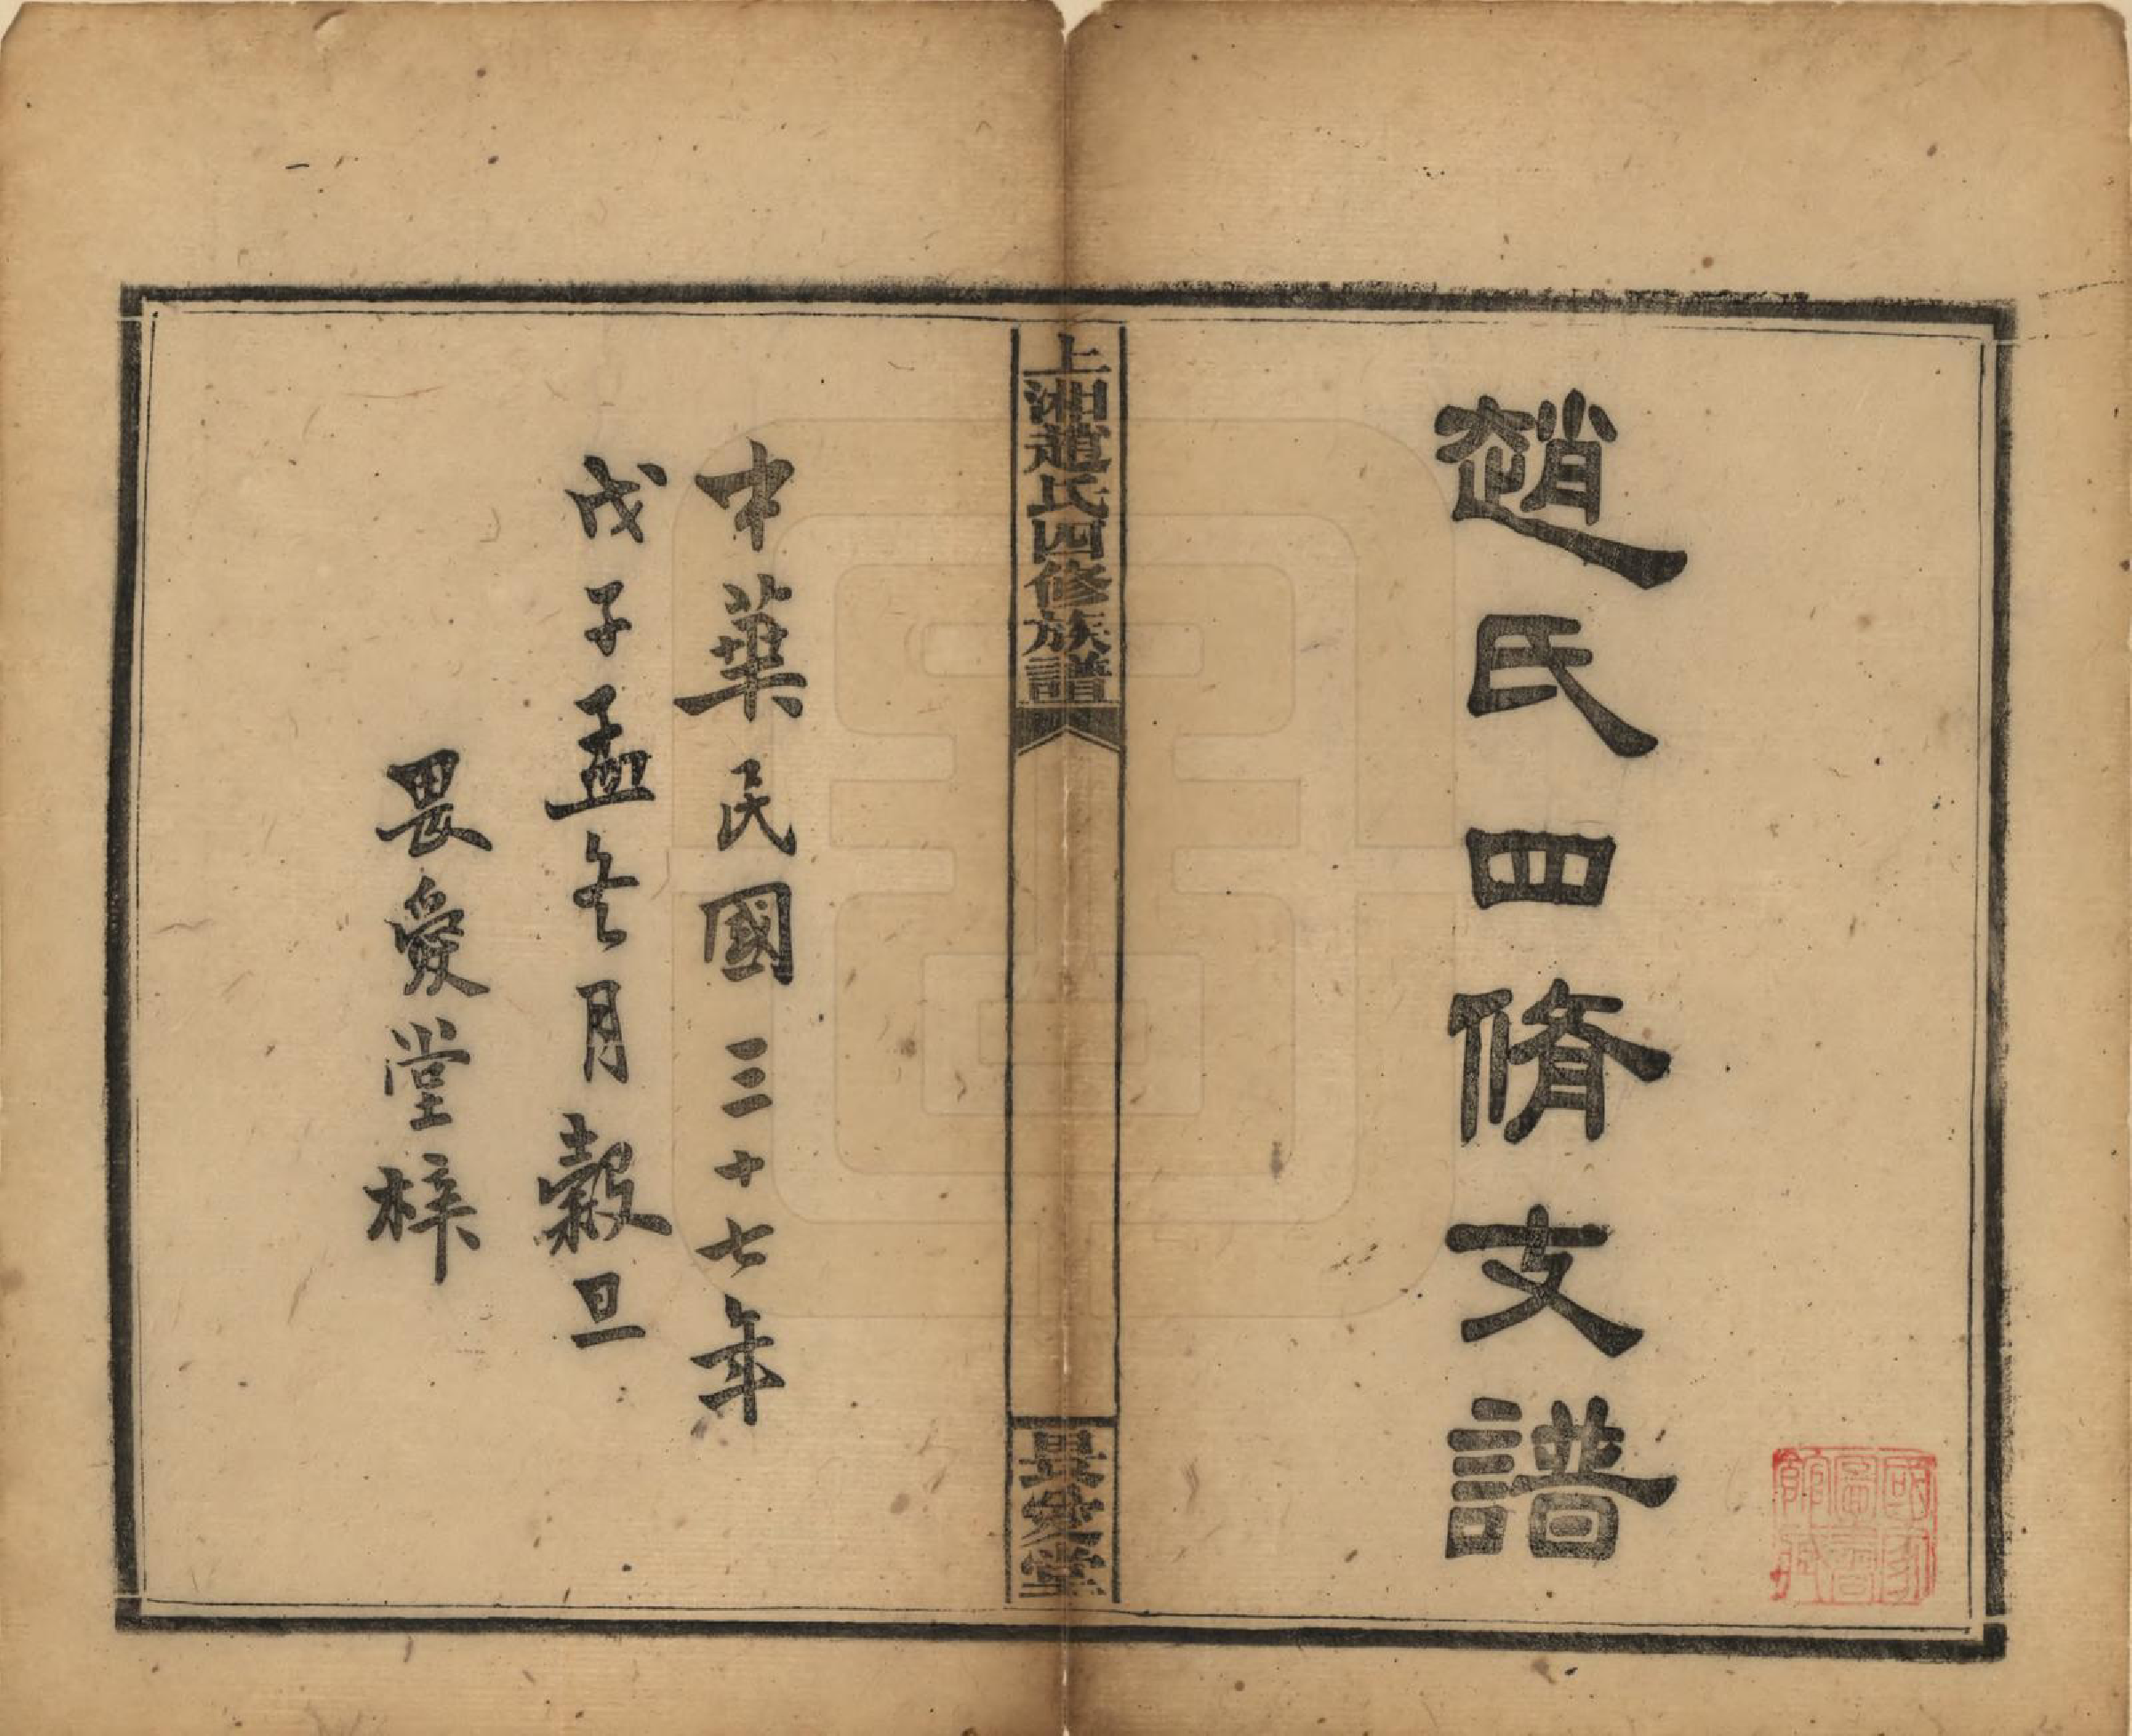 趙氏四脩支譜
國家圖書館藏
上湘趙氏四修族譜
畏愛堂
中華民國三十七年
戊子孟冬月穀旦
畏愛堂梓